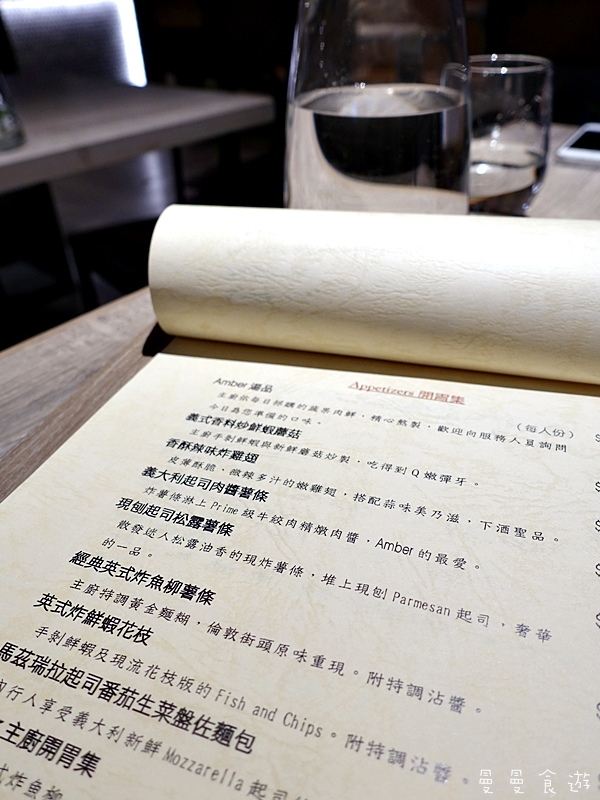 Appetizers 開胃集
Amber 湯品
（每人份） $
主廚依每日採購的蔬果肉鮮，精心熬製，歡迎向服務人員詢問
今日為您準備的口味。
義式香料炒鮮蝦蘑菇
主廚手剝鮮蝦與新鮮蘑菇炒製，吃得到Q嫩彈牙。
香酥辣味炸雞翅
皮薄酥脆，微辣多汁的嫩雞翅，搭配蒜味美乃滋，下酒聖品。
義大利起司肉醬薯條
炸薯條淋上Prime級牛絞肉精燉肉醬，Amber的最愛。
現刨起司松露薯條
散發迷人松露油香的現炸薯條，堆上現刨Parmesan起司，奢華
的一品。
經典英式炸魚柳薯條
主廚特調黃金麵糊，倫敦街頭原味重現。附特調沾醬。
英式炸鮮蝦花枝
手剝鮮蝦及現流花枝版的Fish and Chips。附特調沾醬。
馬茲瑞拉起司番茄生菜盤佐麵包
內行人享受義大利新鮮Mozzarella起司
主廚開胃集
式炸魚柳
曼曼食遊